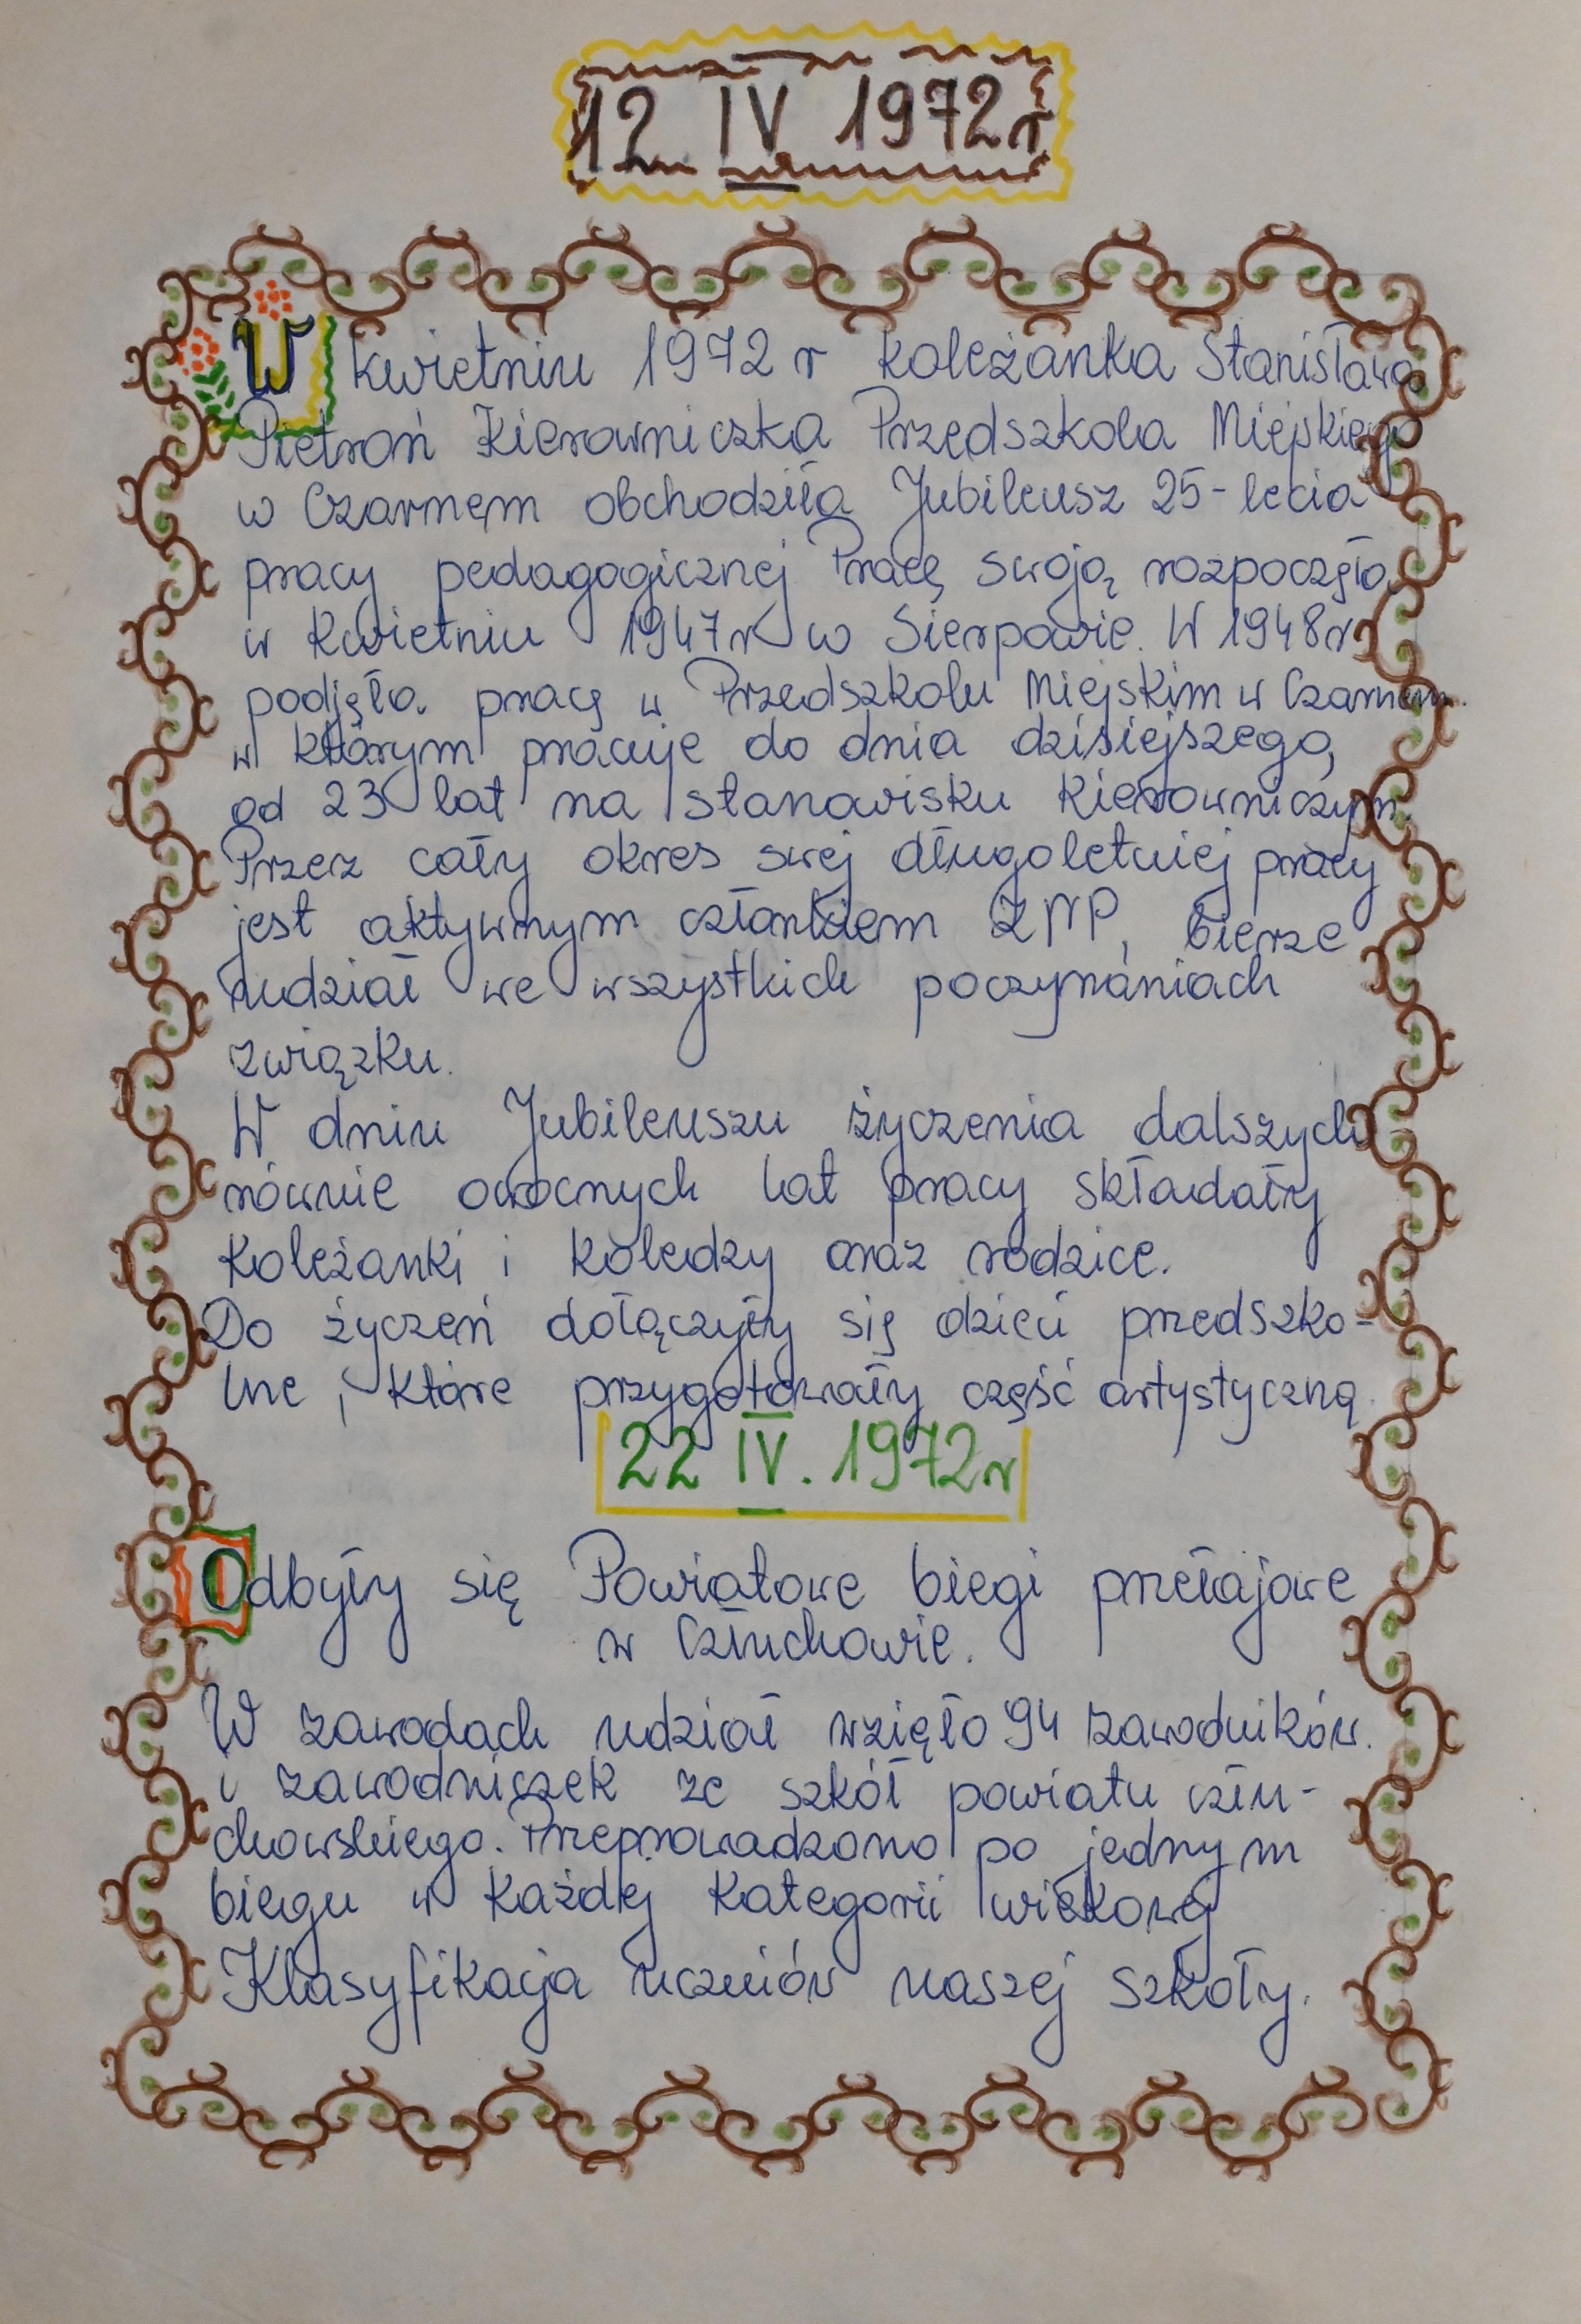 12 IV 1972 r
W kwietniu 1972 r koleżanka Stanisława
Pietroń Kierowniczka Przedszkola Miejskiego
w Czarnem obchodziła Jubileusz 25-lecia
pracy pedagogicznej Pracę swoją rozpoczęła
w Kwietniu 1947 r w Sierpowie. W 1948 r
podjęła pracę w Przedszkolu Miejskim w Czarnem.
w którym pracuje do dnia dzisiejszego,
od 23 lat na stanowisku Kierowniczym.
Przez cały okres swej długoletniej pracy
jest aktywnym członkiem ZNP, bierze
udział we wszystkich poczynaniach
związku.
W dniu Jubileuszu życzenia dalszych
równie owocnych lat pracy składały
Koleżanki i koledzy oraz rodzice.
Do życzeń dołączyły się dzieci przedszko-
lne, które przygotowały część artystyczną.
22 IV. 1972 r
Odbyły się Powiatowe biegi przełajowe
w Człuchowie.
W zawodach udział wzięło 94 zawodników.
i zawodniczek ze szkół powiatu człu-
chowskiego. Przeprowadzono po jednym
biegu w Każdej Kategorii wiekowej
Klasyfikacja uczniów naszej szkoły.